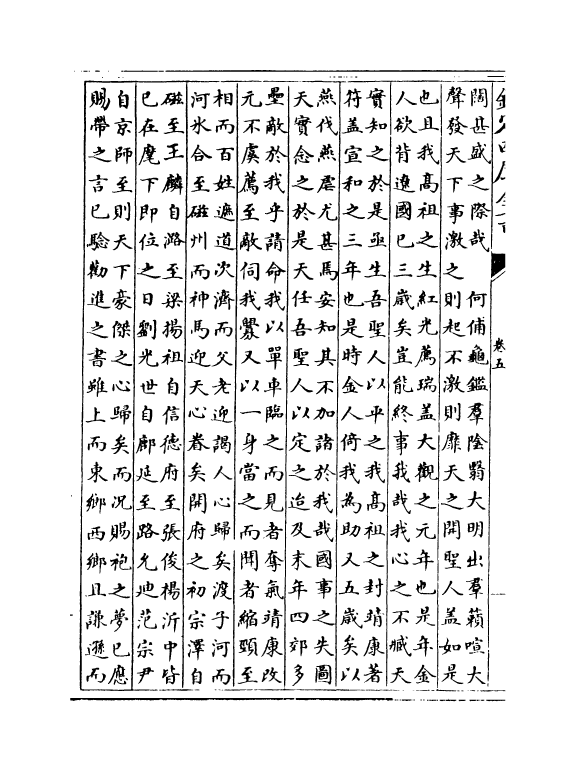 欽定四庫全書
卷五
闊甚盛之際哉　何俌龜鑑羣陰翳大明出羣籟喧大
聲發天下事激之則起不激則靡天之開聖人蓋如是
也且我高祖之生紅光薦瑞蓋大觀之元年也是年金
人欲背遼國已三歲矣豈能終事我哉我心之不臧天
實知之於是亟生吾聖人以平之我高祖之封靖康著
符蓋宣和之三年也是時金人倚我為助又五歲矣以
燕伐燕虐尤甚焉安知其不加諸於我哉國事之失圖
天實念之於是天任吾聖人以定之迨及末年四郊多
壘敵於我乎請命我以單車臨之而見者奪氣靖康改
元不虞薦至敵伺我釁又以一身當之而聞者縮頸至
相而百姓遮道次濟而父老迎謁人心歸矣渡子河而
河氷合至磁州而神馬迎天心眷矣開府之初宗澤自
磁至王麟自潞至梁揚祖自信德府至張俊楊沂中皆
已在麾下即位之日劉光世自鄜延至路允迪范宗尹
自京師至則天下豪傑之心歸矣而况賜袍之夢已應
賜帶之言已驗勸進之書雖上而東鄉西鄉且謙遜而